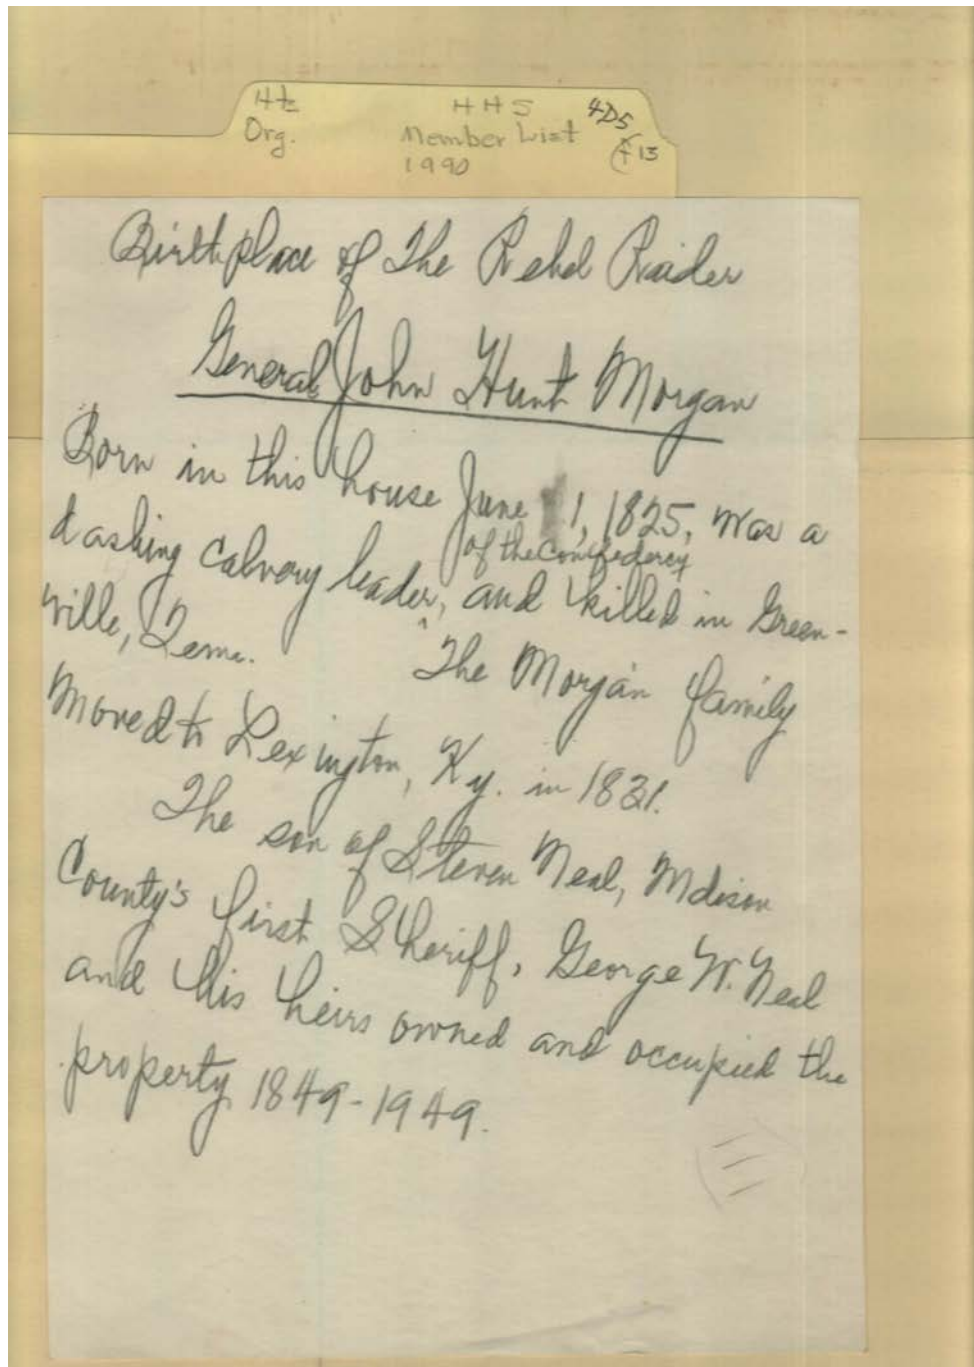 Hts HHS 4D5
Org. Member List f 13
1990
Birthplace of The Rebel Raider
General John Hunt Morgan
Born in this house June 1, 1825, was a
of the Confedercy
dashing Calvory leader, and killed in Green-
ville, Tenn. The Morgan family
moved to Lexington, Ky. in 1831.
The son of Steven Neal, Mdison
County's first Sheriff, George W. Neal
and his heirs owned and occupied the
property 1849-1949.